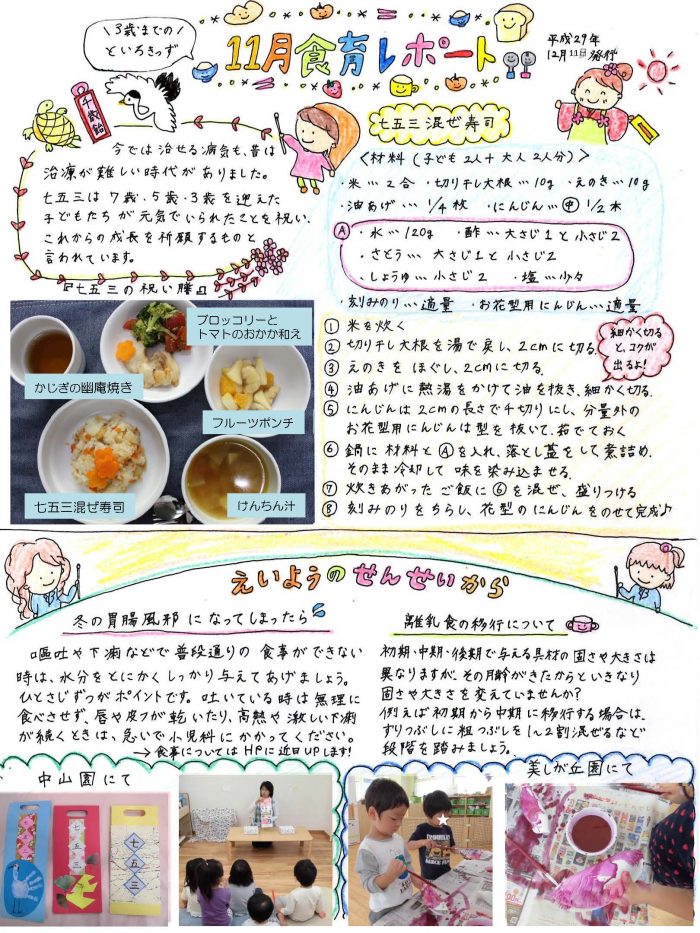 3歳までの
といろきっず
11月食育レポート
平成29年
12月11日発行
千歳飴
今では治せる病気も、昔は
治療が難しい時代がありました。
七五三は7歳・5歳・3歳を迎えた
子どもたちが元気でいられたことを祝い、
これからの成長を祈願するものと
言われています。
『七五三の祝い膳』
ブロッコリーと
トマトのおかか和え
かじきの幽庵焼き
フルーツポンチ
七五三混ぜ寿司
けんちん汁
七五三混ぜ寿司
<材料(子ども2人+大人2人分)>
・米…2合 ・切り干し大根…10g ・えのき…10g
・油あげ…1/4枚 ・にんじん…㊥1/2本
Ⓐ ・水…120g ・酢…大さじ1と小さじ2
・さとう…大さじ1と小さじ2
・しょうゆ…小さじ2 ・塩…少々
・刻みのり…適量 ・お花型用にんじん…適量
① 米を炊く
② 切り干し大根を湯で戻し、2cmに切る.
③ えのきをほぐし、2cmに切る.
④ 油あげに熱湯をかけて油を抜き、細かく切る.
細かく切る
と、コクが
出るよ!
⑤ にんじんは2cmの長さで千切りにし、分量外の
お花型用にんじんは型を抜いて、茹でておく
⑥ 鍋に材料とⒶを入れ、落とし蓋をして煮詰め、
そのまま冷却して味を染み込ませる.
⑦ 炊きあがったご飯に⑥を混ぜ、盛りつける
⑧ 刻みのりをちらし、花型のにんじんをのせて完成♪
えいようのせんせいから
冬の胃腸風邪になってしまったら
嘔吐や下痢などで普段通りの食事ができない
時は、水分をとにかくしっかり与えてあげましょう。
ひとさじずつがポイントです。吐いている時は無理に
食べさせず、唇や皮フが乾いたり、高熱や激しい下痢
が続くときは、急いで小児科にかかってください。
→食事についてはHPに近日UPします!
離乳食の移行について
初期、中期、後期で与える具材の固さや大きさは
異なりますが、その月齢がきたからといきなり
固さや大きさを変えていませんか?
例えば初期から中期に移行する場合は、
すりつぶしに粗つぶしを1~2割混ぜるなど
段階を踏みましょう。
中山園にて
美しが丘園にて
七五三
七五三
七五三